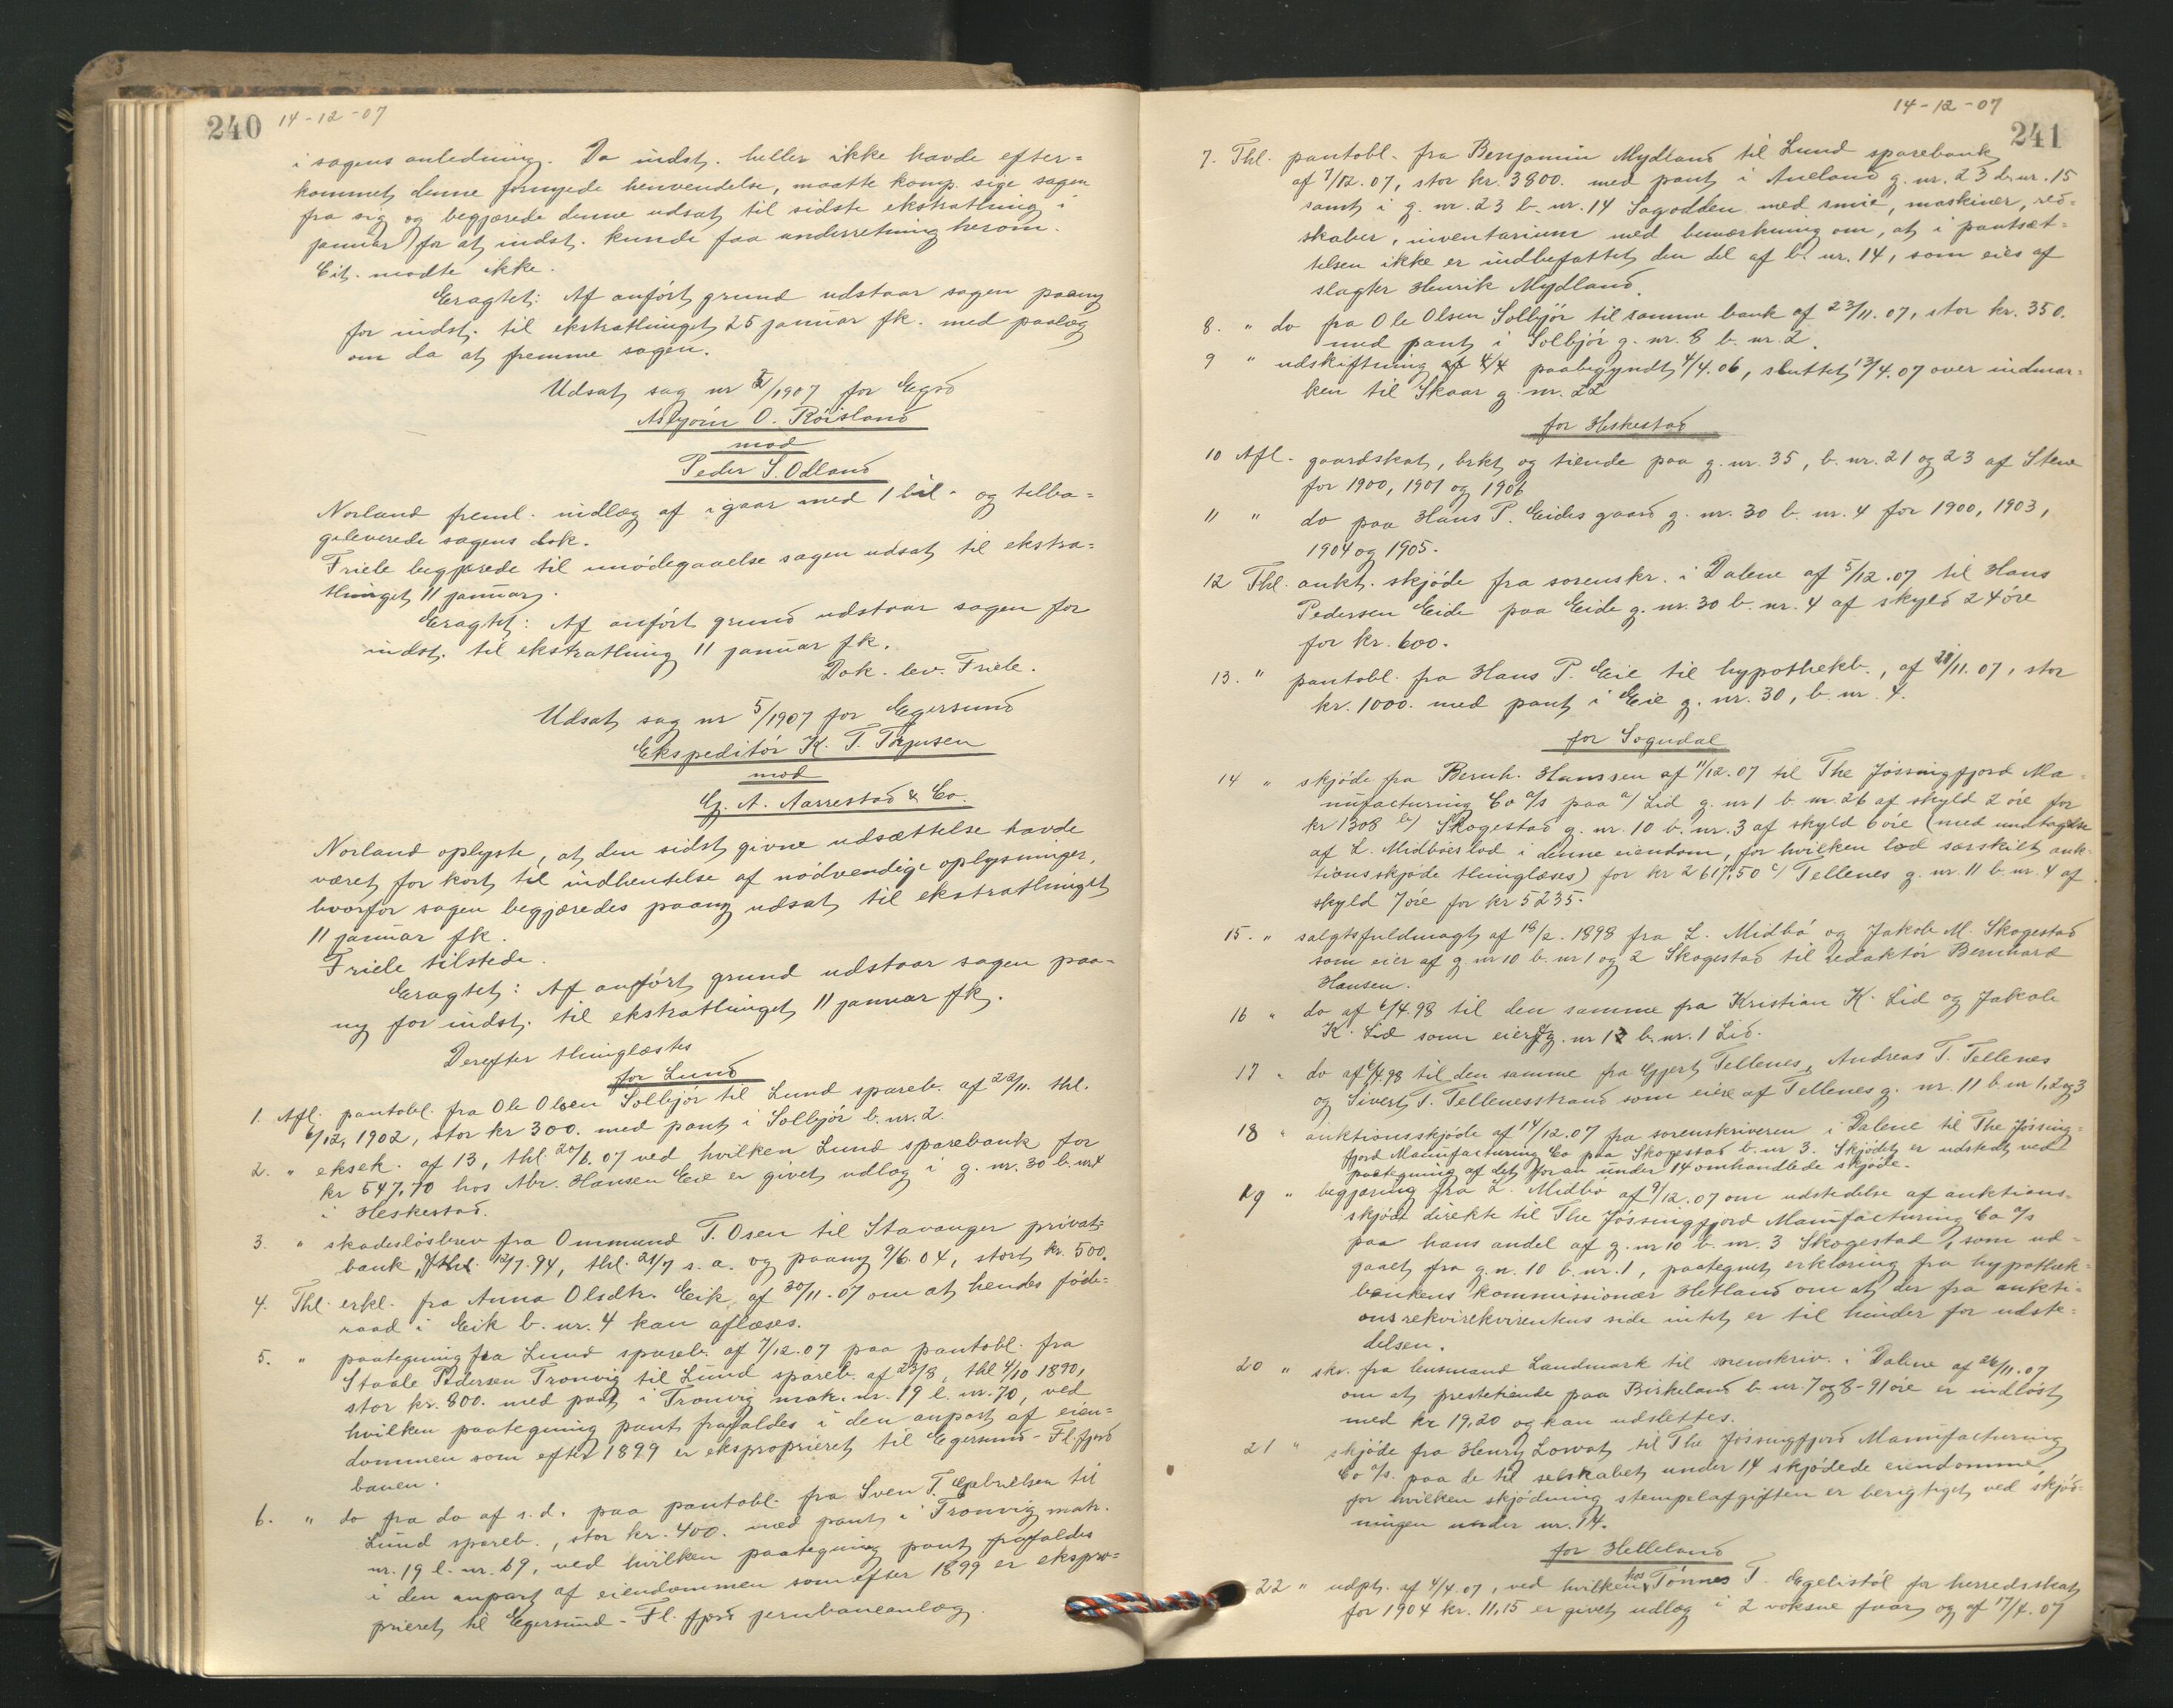 240 14-12-07
i sagens anledning. Da indst. heller ikke havde efter=
kommet denne fornyede henvendelse, maatte komp. sige sagen
fra sig og begjærede denne udsat til sidste ekstrathing i
januar for at indst. kunde faa underretning herom.
Cit. mødte ikke.
Eragtet: Af anført grund udstaar sagen paany
for indst. til ekstrathinget 25 januar fk. med paalæg
om da at fremme sagen.
Udsat sag nr /1907 for Egrd
Asbjørn O. Röisland
mod
Peder S. Odland
Norland freml. indlæg af igaar med 1 bil. og tilba=
geleverede sagens dok.
Friele begjærede til imødegaaelse sagen udsat til ekstra=
thinget 11 januar.
Eragtet: Af anført grund udstaar sagen for
indst. til ekstrathing 11 januar fk.
Dok. lev. Friele.
Udsat sag nr 5/1907 for Egersund
Ekspeditör K. T. Torjusen
mod
G. A. Aarrestad & Co.
Norland oplyste, at den sidst givne udsættelse havde
været for kort til indhentelse af nödvendige oplysninger,
hvorfor sagen begjæredes paany udsat til ekstrathinget
11 januar fk.
Friele tilstede.
Eragtet: Af anført grund udstaar sagen paa-
ny for indst. til ekstrathinget 11 januar fk.
Derefter thinglæstes
for Lund
1. Afl. pantobl. fra Ole Olsen Solbjör til Lund spareb. af 22/11. thl.
6/12. 1902, stor kr 300. med pant i Solbjör b. nr. 2.
2. " eksek. af 13, thl. 20/6. 07 ved hvilken Lund sparebank for
kr 547,70 hos Abr. Hansen Eie er givet udlæg i g. nr. 30 b. nr 4
i Heskestad.
3. " skadeslösbrev fra Ommund T. Osen til Stavanger privat=
bank, 12/7. 94, thl. 21/7 s. a. og paany 9/6. 04, stort kr. 500.
4. Thl. erkl. fra Anna Olsdtr. Eik af 30/11. 07 om at hendes föde=
raad i Eik b. nr. 4 kan aflæses.
5. " paategning fra Lund spareb. af 7/12. 07 paa pantobl. fra
Staale Pedersen Tronvig til Lund spareb. af 23/8, thl 4/10 1890,
stor kr. 800. med pant i Tronvig matr. nr. 19 l. nr. 70, ved
hvilken paategning pant frafaldes i den anpart af eien=
dommen som efter 1899 er eksproprieret til Egersund-Fl.fjord
banen.
6. " do fra do af s. d. paa pantobl. fra Sven T. Gabrielsen til
Lund spareb., stor kr. 400. med pant i Tronvig matr.
nr. 19 l. nr. 69, ved hvilken paategning pant frafaldes
i den anpart af eiendommen som efter 1899 er ekspro=
prieret til Egersund-Fl. fjord jernbaneanlæg.
14-12-07
241
7. Thl. pantobl. fra Benjamin Mydland til Lund sparebank
af 7/12. 07, stor kr. 3800. med pant i Aneland g. nr. 23 b. nr. 15
samt i g. nr. 23 b. nr. 14 Sagodden med smie, maskiner, red=
skaber, inventarium med bemærkning om, at i pantsæt=
telsen ikke er indbefattet den del af b. nr. 14, som eies af
slagter Henrik Mydland.
8. " do fra Ole Olsen Solbjör til samme bank af 23/11. 07, stor kr. 350.
med pant i Solbjör g. nr. 8 b. nr. 2.
9 " udskiftning af 4/4 paabegyndt 4/4. 06, sluttet 13/4. 07 over indmar=
ken til Skaar g. nr. 22
for Heskestad
10 Afl. gaardskat, brkt og tiende paa g. nr. 35, b. nr. 21 og 23 af Stene
for 1900, 1901 og 1906
11 " do paa Hans P. Eides gaard g. nr. 30 b. nr. 4 for 1900, 1903,
1904 og 1905.
12 Thl. aukt. skjöde fra sorenskr. i Dalene af 5/12. 07 til Hans
Pedersen Eide paa Eide g. nr. 30 b. nr. 4 af skyld 24 öre
for kr. 600.
13. " pantobl. fra Hans P. Eie til hypothekb., af 28/11. 07, stor
kr. 1000. med pant i Eie g. nr. 30, b. nr. 4.
for Sogndal
14 " skjöde fra Bernh. Hanssen af 11/12. 07 til The Jössingfjord Ma-
nufacturing Co a/s paa a/ Lid g. nr 1 b. nr. 26 af skyld 2 öre for
kr 1308 b/ Skogestad g. nr. 10 b. nr. 3 af skyld 6 öre (med undtagelse
af L. Midböes lod i denne eiendom, for hvilken lod særskilt auk-
tionsskjöde thinglæses) for kr 2617,50 c/ Tellenes g. nr. 11 b. nr. 4 af
skyld 7 öre for kr 5235.
15. " salgsfuldmagt af 18/2. 1898 fra L. Midbö og Jakob M. Skogestad
som eier af g. nr 10 b. nr 1 og 2 Skogestad til redaktör Bernhard
Hansen.
16 " do af 6/4. 98 til den samme fra Kristian K. Lid og Jakob
K. Lid som eier af g. nr 1 b. nr. 1 Lid.
17 " do af 6/4. 98 til den samme fra Gjert Tellenes, Andreas T. Tellenes
og Sivert T. Tellenesstrand som eiere af Tellenes g. nr. 11 b. nr 1, 2 og 3
18 " auktionsskjöde af 14/12. 07 fra sorenskriveren i Dalene til The Jössing=
fjord Manufacturing Co paa Skogestad b. nr 3. Skjödet er udstedt ved
paategning af det foran under 14 omhandlede skjöde.
19 " begjæring fra L. Midbö af 9/12. 07 om udstedelse af auktions-
skjöde direkte til The Jössingfjord Manufacturing Co a/s
paa hans andel af g. nr 10 b. nr. 3 Skogestad, som ud=
gaaet fra g. n. 10 b. nr. 1, paategnet erklæring fra hypothek=
bankens kommissionær Hetland om at der fra aukti=
onsrekvirekvirentens side intet er til hinder for udste=
delsen.
20 " skr. fra lensmand Landmark til sorenskriv. i Dalene af 26/11. 07
om at prestetiende paa Birkeland b. nr. 7 og 8 - 91 öre er indlöst
med kr 19,20 og kan udslettes.
21 " skjöde fra Henry Lowat til The Jössingfjord Manufacturing
Co a/s. paa de til selskabet under 14 skjödede eiendomme
for hvilken skjödning stempelafgiften er berigtiget ved skjöd=
ningen under nr. 14.
for Helleland
22 " udpt. af 4/4. 07, ved hvilken hos Tönnes T. Egelistöl for herredsskat
for 1904 kr. 11,15 er givet udlæg i 2 voksne faar, og af 17/4. 07